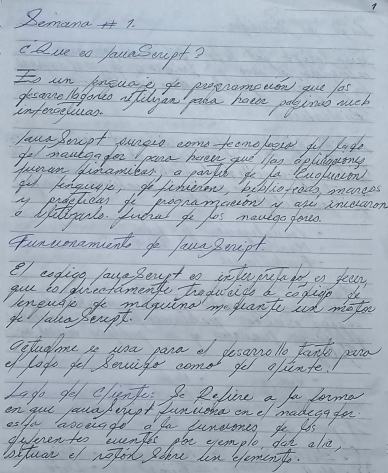 1
Semana # 1.
¿Que es JavaScript?
Es un lenguaje de programación que los
desarrolladores utilizan para hacer paginas web
interactivas.
JavaScript surgio como tecnologia del lado
del navegador para hacer que las aplicaciones
fueran dinamicas, a partir de la Evolución
del lenguaje, definieron, bibliotecas, marcos
y practicas de programación y asi iniciaron
a utilizarlo fuera de los navegadores.
Funcionamiento de JavaScript
El codigo JavaScript es interpretado es decir,
que es directamente traducido a código de
lenguaje de máquina mediante un motor
de JavaScript.
se usa para el desarrollo tanto para
el lado del Servidor como del cliente.
Lado del Cliente: Se Refiere a la forma
en que JavaScript funciona en el navegador
esta asociado a la funciones de los
diferentes eventos por ejemplo dar
situar el ratón sobre un elemento.